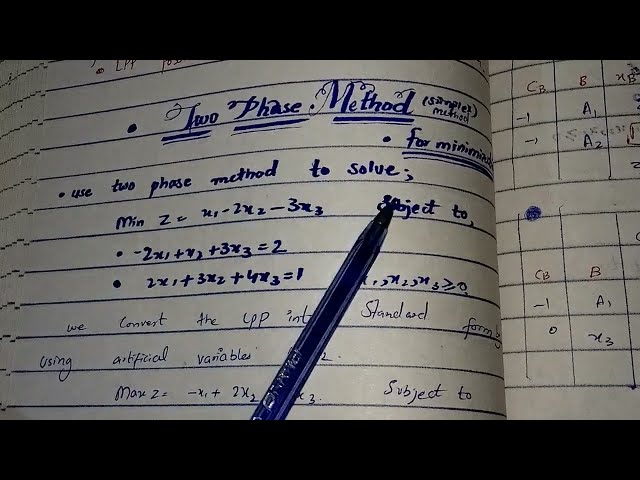 Two Phase Method (simplex method)
• for minimiz
• use two phase method to solve;
Min Z = x₁ - 2x₂ - 3x₃ Subject to,
• -2x₁ + x₂ + 3x₃ = 2
• 2x₁ + 3x₂ + 4x₃ = 1 x₁, x₂, x₃ ≥ 0
we convert the LPP into Standard form by
using artificial variables
Max Z = -x₁ + 2x₂ x₃. Subject to
C_B B x_B
-1 A₁
-1 A₂
C_B B
-1 A₁
0 x₃